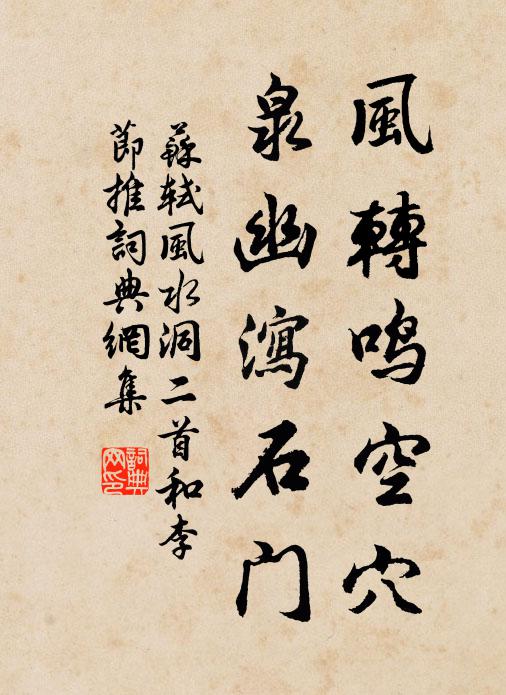 風轉鳴空穴
泉幽瀉石門
蘇軾風水洞二首和李
節推詞典網集
詞典
网印